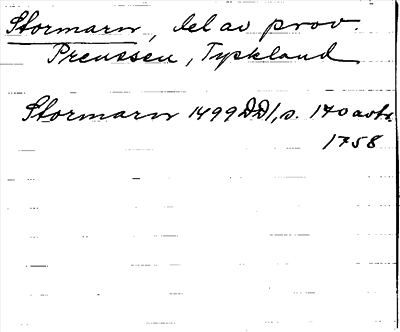 Stormarn, del av prov.
Preussen, Tyskland
Stormarn 1499 DD1, s. 170 avtr.
1758